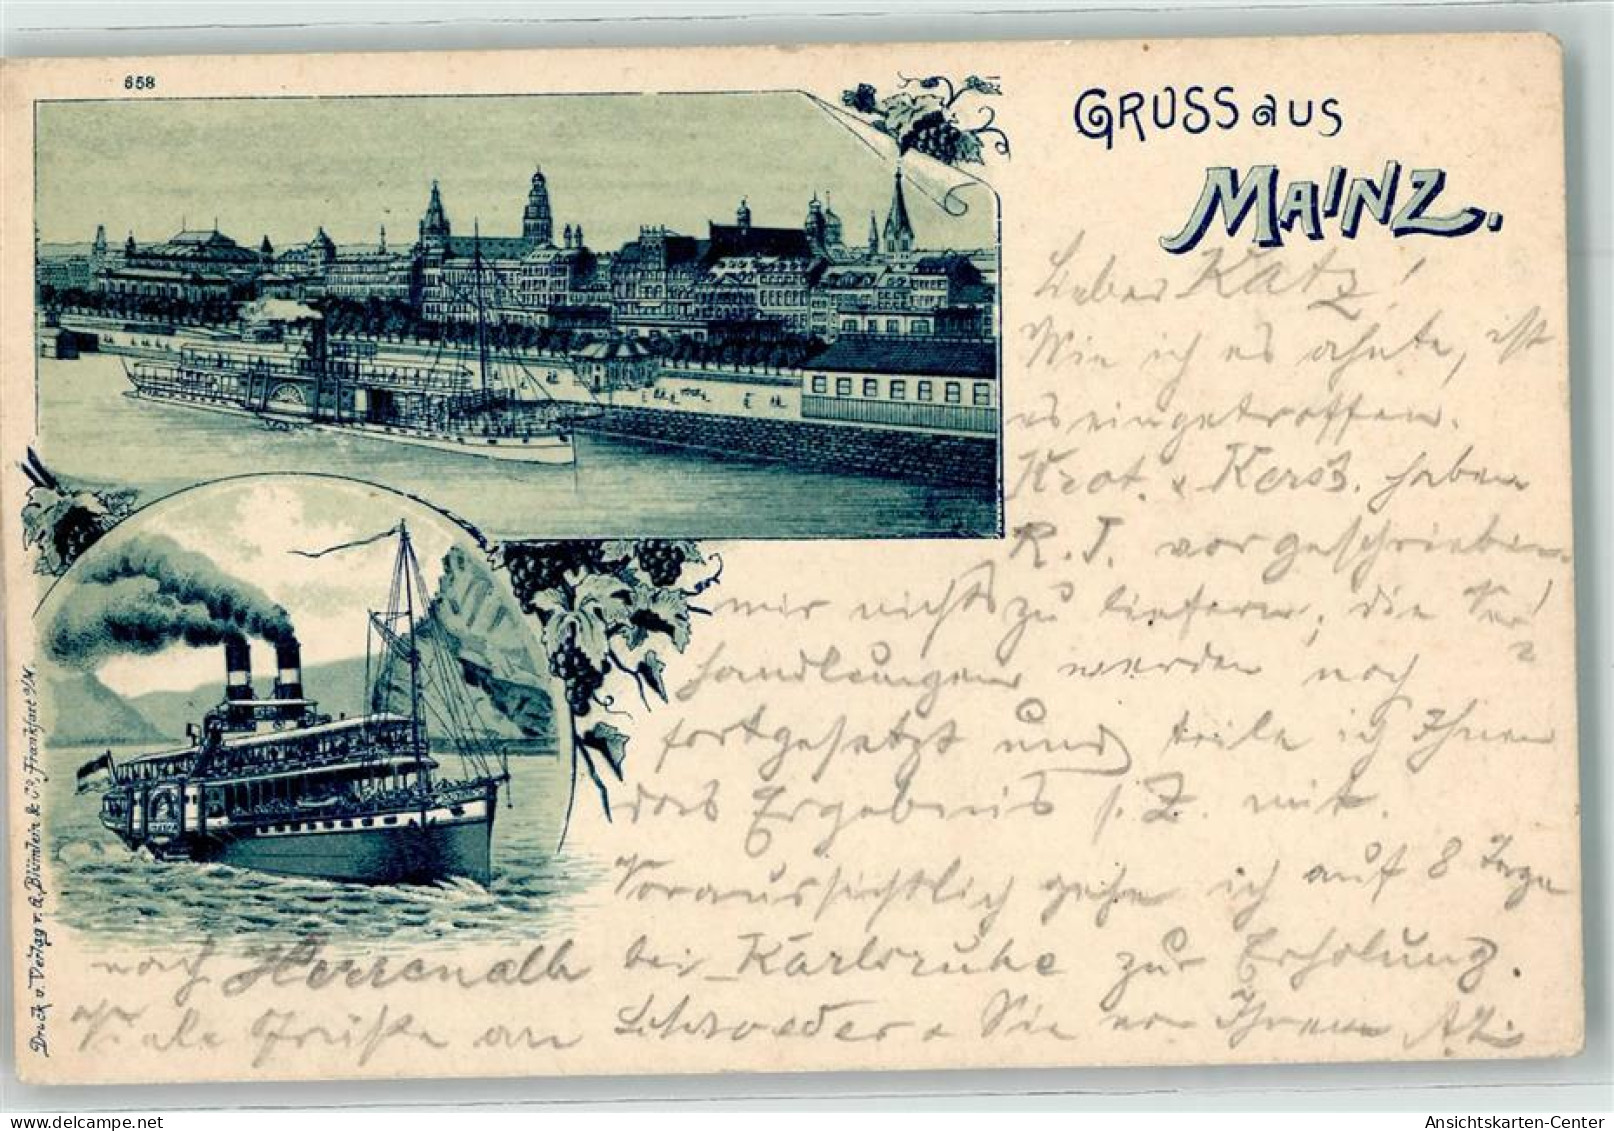 658
GRUSS aus
MAINZ.
Lieber Katz!
Wie ich es ahnte, ist
es eingetroffen.
Krot. & Kersz. haben
R. J. vorgeschrieben
mir nichts zu liefern, die Ver-
handlungen werden noch
fortgesetzt und teile ich Ihnen
das Ergebnis s. Z. mit.
Voraussichtlich gehe ich auf 8 Tage
nach Herrenalb bei Karlsruhe zur Erholung.
Viele Grüße an Schroeder & Sie von Ihrem
Druck u. Verlag v. A. Blümlein & Co, Frankfurt a/M.
Ansichtskarten-Center